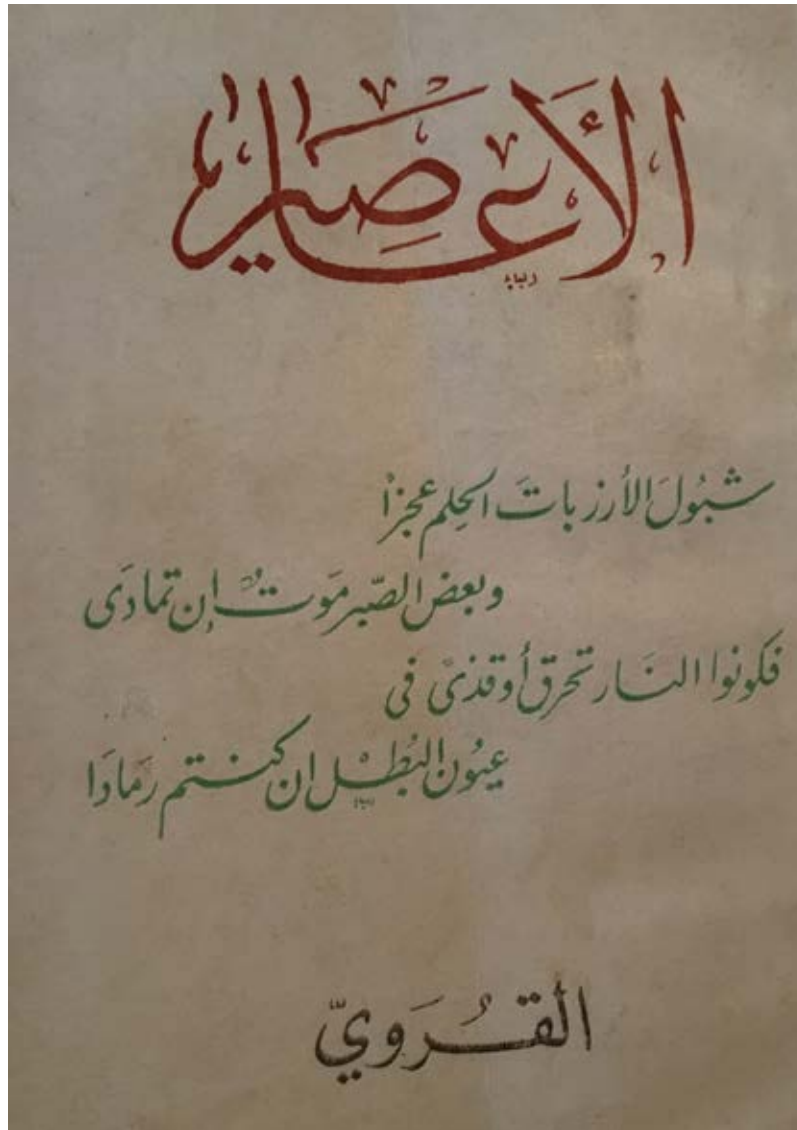 الأعاصير
شبُولَ الأرز باتَ الحِلم عجزاً
وبعض الصّبر مَوتٌ إن تمادَى
فكونوا النَار تحرق أو قذىً فى
عيُون البُطْل ان كنتم رمَادَا
القُرَويّ